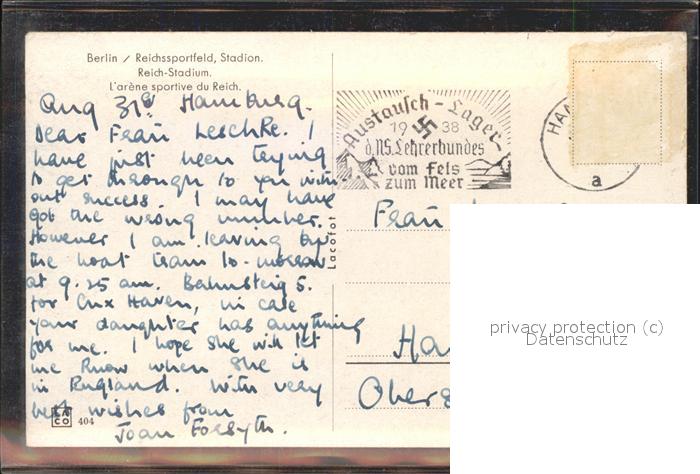 Berlin / Reichssportfeld, Stadion.
Reich-Stadium.
L'arène sportive du Reich.
Aug 31st. Hamburg.
Dear Frau Leschke. I
have just been trying
to get through to you with
out success. I may have
got the wrong number.
However I am leaving by
the boat train to-morrow
at 9.25 am. Bahnsteig 5.
for Cux Haven, in case
your daughter has anything
for me. I hope she will let
me know when she is
in England. With very
best wishes from
Joan Forsyth.
LACO
404
Lacofot
Austausch-Lager
1938
d. NS. Lehrerbundes
vom Fels
zum Meer
HAM
a
Frau
Ha
Obers
privacy protection (c)
Datenschutz